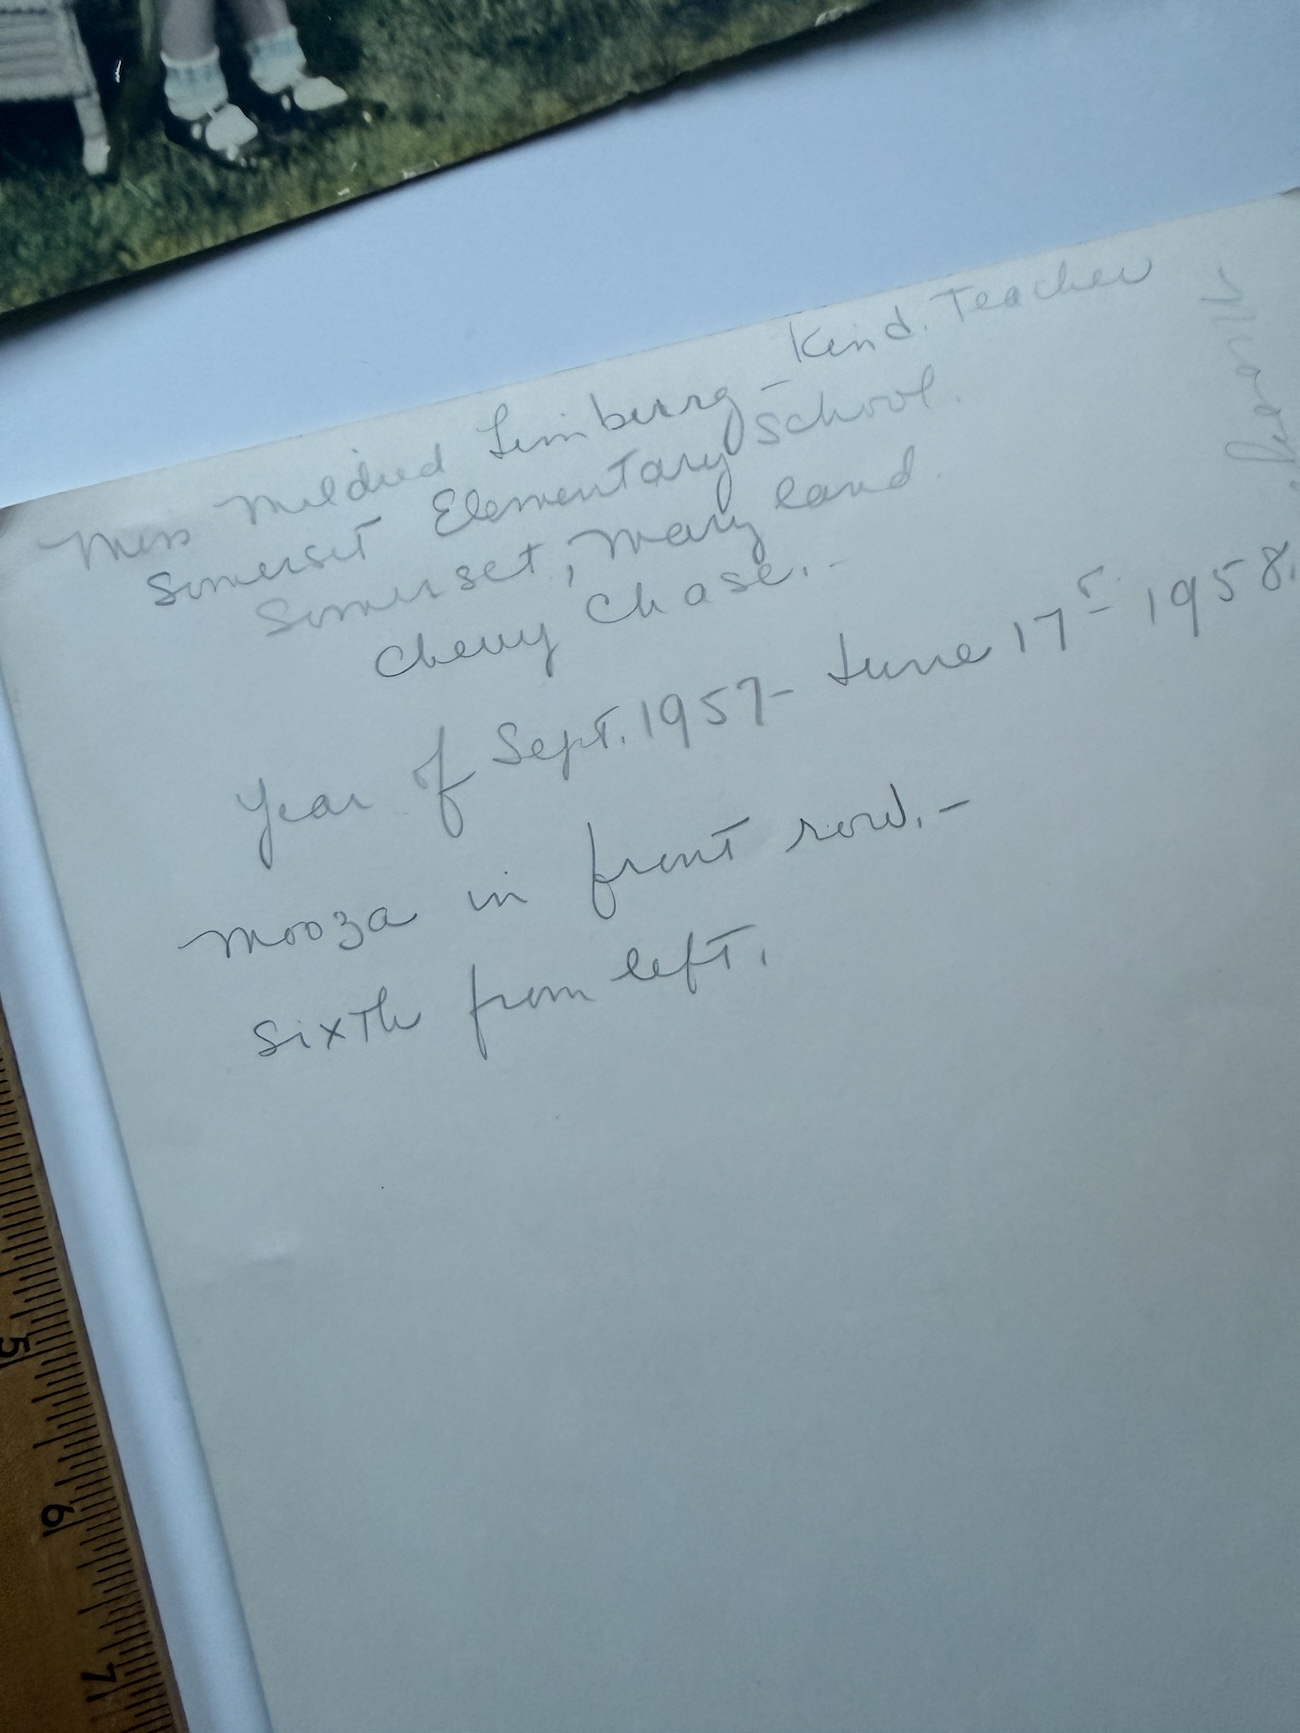 Miss Mildred Limburg - Kind. Teacher
Somerset Elementary School.
Somerset, Maryland.
Chevy Chase. -
Year of Sept. 1957 - June 17 - 1958.
Mooza in front row. -
Sixth from left.
5
6
7